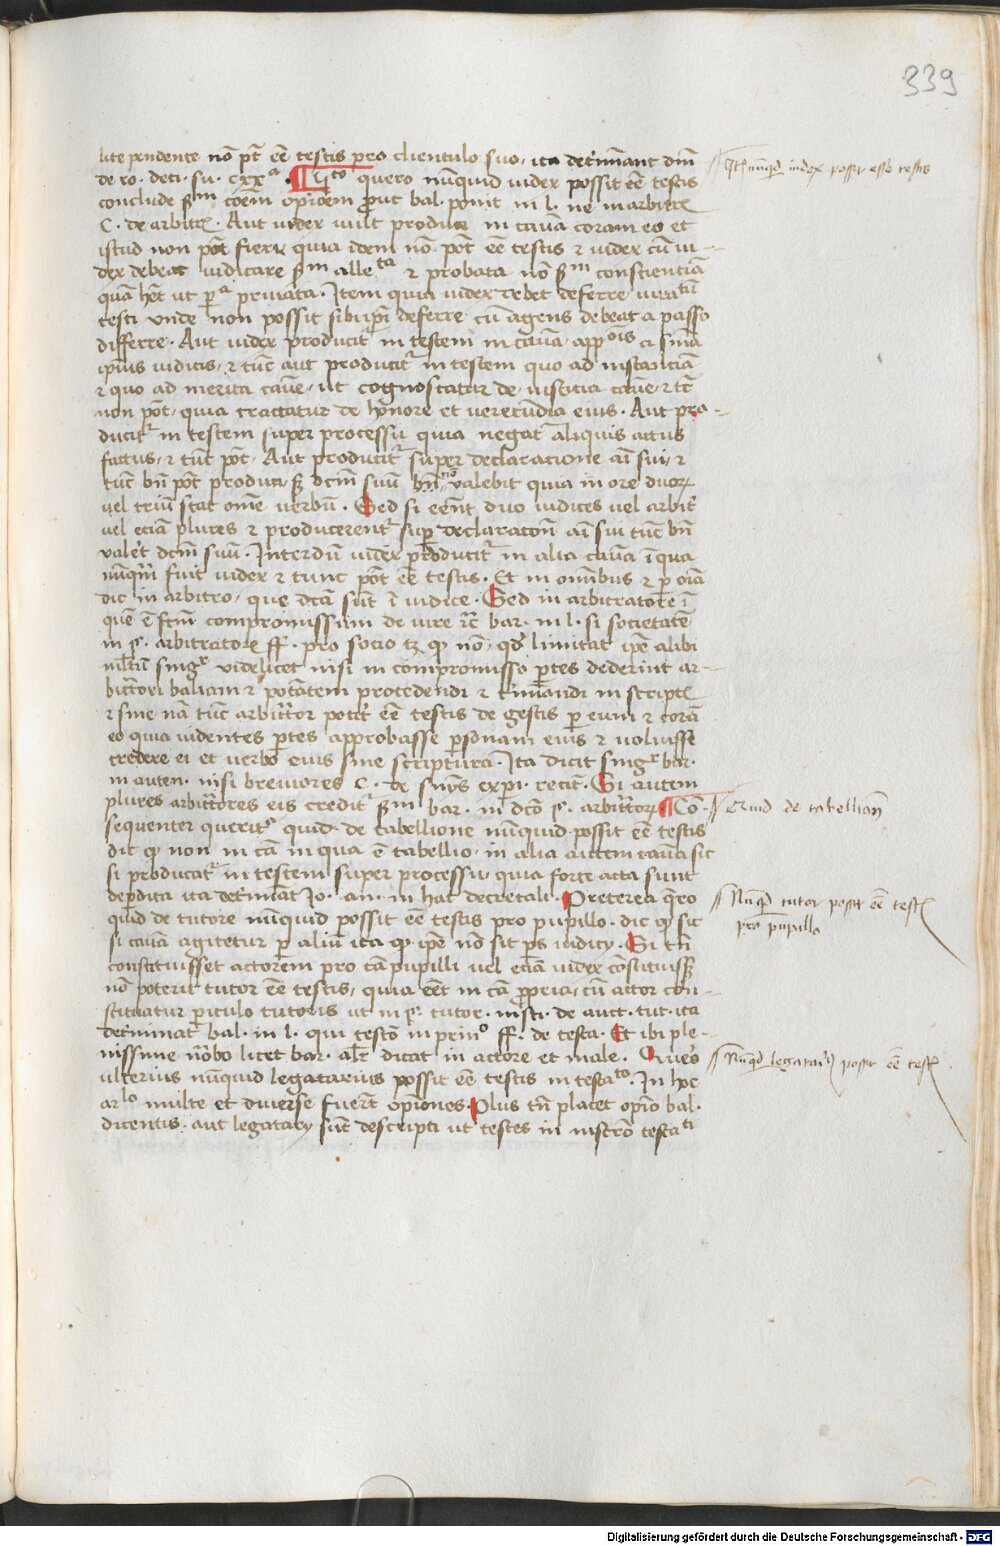 339
lite pendente nō pt̄ eē testis pro clientulo suo, ita detīnant dn̄i
de ro. deci. su. cxxᵃ. ¶ Vᵗᵒ quero nūquid iudex possit eē testis
conclude sᵐ coēm opiōem prout bal. ponit in l. ne in arbitris
C. de arbitris. Aut iudex vult produci in causa coram eo et
istud non pōt fieri quia idem nō pōt eē testis et iudex cū iu-
dex debeat iudicare sᵐ alleᵗᵃ et probata nō sᵐ conscienciā
quā hēt ut pᵃ priuata. Item quia iudex debet deferre iuratū
testi unde non possit sibi ipi deferre cū agens debeat a passo
differre. Aut iudex producitr̄ in testem in causa appōis a sn̄ia
ipius iudicis, et tūc aut producitr̄ in testem quo ad instanciā
et quo ad merita cause, ut cognoscatur de iusticia cause, et tūc
non pōt, quia tractatur de honore et verecundia eius. Aut pro-
ducitr̄ in testem super processu quia negatr̄ aliquis actus
factus, et tūc pōt. Aut producitr̄ super declaracione ai sui, et
tūc bn̄ pōt produci, sz dc̄m suū bn̄ nō valebit quia in ore duorz
vel triū stat om̄e verbū. Sed si eēnt duo iudices vel arbit
vel eciā plures et producerentr̄ sup declaracōn ai sui tūc bn̄
valet dc̄m suū. Interdū iudex producitr̄ in alia causa ī qua
nūqm̄ fuit iudex et tunc pōt eē testis. Et in omībus et p oīa
dic in arbitro, que dc̄a sūt ī iudice. Sed in arbitratore ī
quē ē fc̄m compromissum de iure
in §. arbitratore ff. pro socio tz qz nō, qd limitat ipē alibi
videlicet nisi in compromisso ptes dederint ar-
bitr̄tori baliam et potātem procedendi et t'minandi in scriptis
et sine nā tūc arbitr̄tor potit eē testis de gestis p eum et corā
eo quia videntes ptes approbasse psonam eius et voluisse
credere ei et verbo eius sine scriptura. Ita dicit singᵣ bar.
in auten. nisi breuiores C. de sn̄ys ex pi. recit. Si autem
plures arbitr̄tores eis creditr̄ sᵐ bar. in dc̄o §. arbitr̄torz. ¶ Co-
sequenter queritr̄ quid de tabellione nūquid possit eē testis
dic qz non in cā in qua ē tabellio, in alia autem causa sic
si producatr̄ in testem super processu, quia forte acta sunt
depdita ita det'minat Jo. an. in hac decretali. Preterea qro
quid de tutore nūquid possit eē testis pro pupillo. dic qz sic
si causa agitetur p aliū ita qz ipē nō sit ps iudicy. Si tn̄
constituisset actorem pro cā pupilli vel eciā iudex cōstituissz
nō poterit tutor eē testis, quia eēt in cā ppria, cū actor con-
stituatur piculo tutoris ut in §. tutor. insti. de auct. tut. ita
det'minat bal. in l. qui testō in prinᵒ ff. de testa. Et ibi ple-
nissime nōbo licet bar. alr̄ dicat in actore et male. Quero
ulterius nūquid legatarius possit eē testis in testaᵗᵒ. In hoc
arᵗᵒ multe et diuerse fuerūt opiniones. Plus tn̄ placet opio bal.
dicentis. aut legatary sūt descripti ut testes in nuscᵣo testaᵗⁱ
Itē nūqd iudex possit esse testis
Quid de tabellion
Nūqd tutor possit eē testis
pro pupillo
Nūqd legatari9 possit eē testis
Digitalisierung gefördert durch die Deutsche Forschungsgemeinschaft - DFG